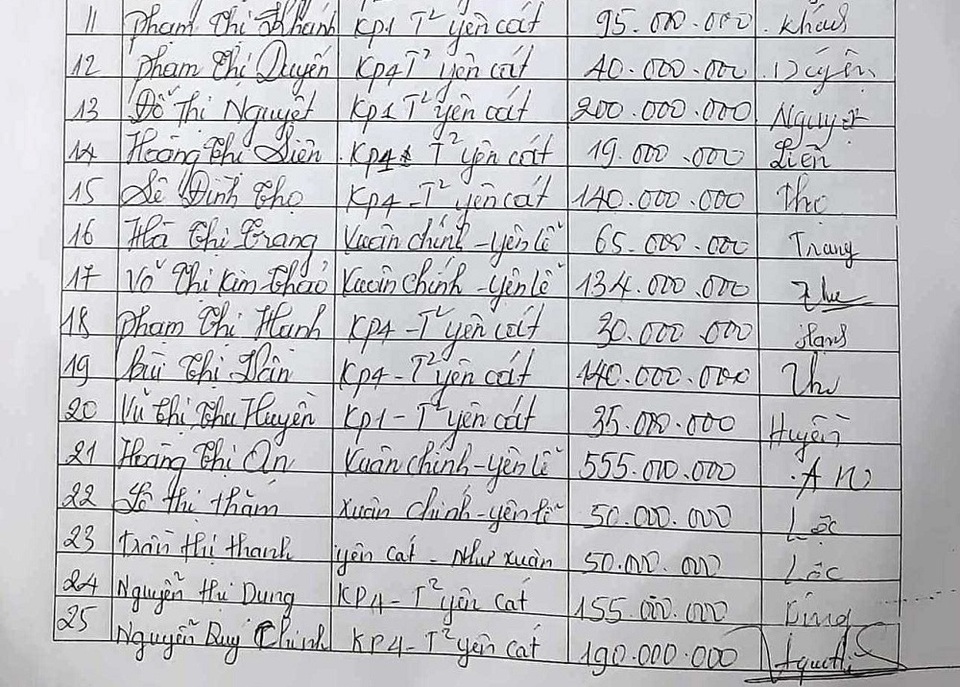 11 Phạm Thị Khánh KP1 T² yên cát 95.000.000 Khánh
12 Phạm Thị Quyến KP4 T² yên cát 40.000.000
13 Đỗ Thị Nguyệt KP1 T² yên cát 200.000.000 Nguyệt
14 Hoàng Thị Liên KP4 T² yên cát 19.000.000 Liên
15 Lê Đình Thọ KP4 - T² yên cát 140.000.000 Thọ
16 Hà Thị Trang Xuân chính - yên lễ 65.000.000 Trang
17 Võ Thị Kim Thảo Xuân chính - yên lễ 134.000.000
18 Phạm Thị Hạnh KP4 - T² yên cát 30.000.000
19 Bùi Thị Dần KP4 - T² yên cát 140.000.000
20 Vũ Thị Thu Huyền KP1 - T² yên cát 35.000.000 Huyền
21 Hoàng Thị An Xuân chính - yên lễ 555.000.000
22 thị thắm Xuân chính - yên lễ 50.000.000 Lộc
23 trần thị thanh yên cát - Như xuân 50.000.000 Lộc
24 Nguyễn Thị Dung KP4 - T² yên cát 155.000.000
25 Nguyễn Duy Chinh KP4 - T² yên cát 190.000.000